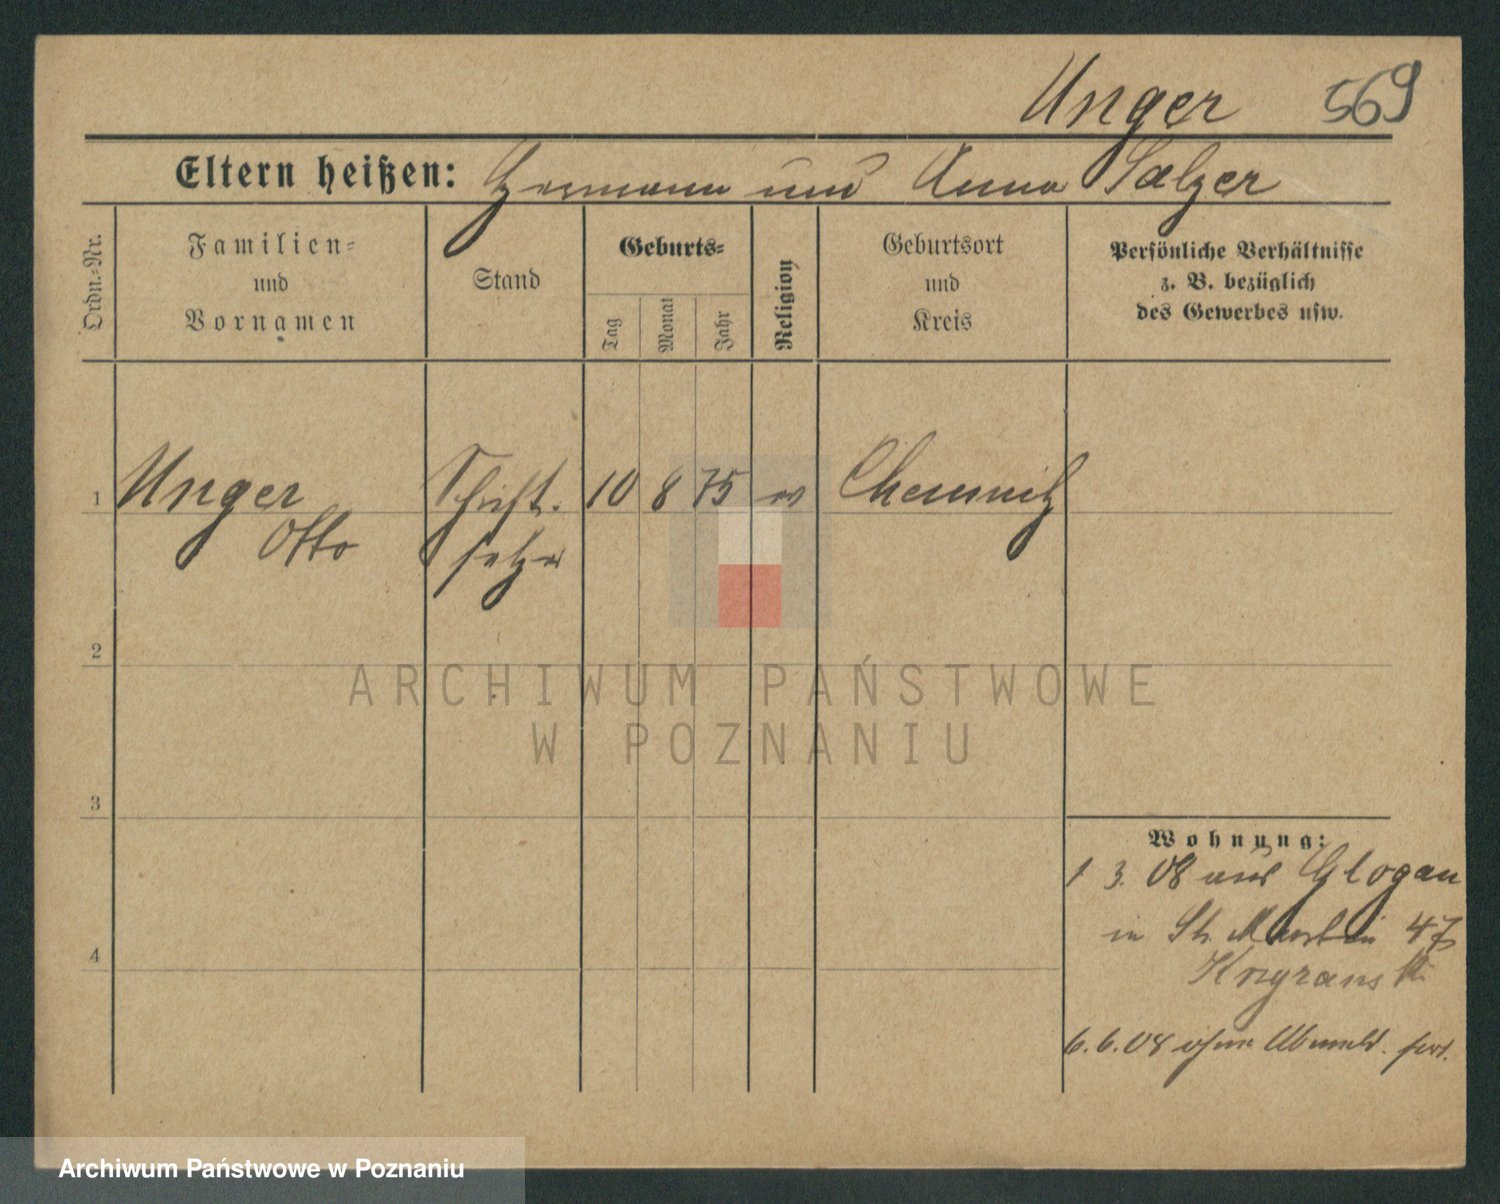 Unger 569
Eltern heißen: Hermann und Anna Salzer
Ordn.-Nr.
Familien-
und
Vornamen
Stand
Geburts-
Tag
Monat
Jahr
Religion
Geburtsort
und
Kreis
Persönliche Verhältnisse
z. B. bezüglich
des Gewerbes usw.
1 Unger Schrift- 10 8 75 ev Chemnitz
Otto setzer
2
3
4
Wohnung:
1 3. 08 aus Glogau
in St. Martin 47
6.6.08 ohne Abmeld. fort.
ARCHIWUM PAŃSTWOWE
W POZNANIU
Archiwum Państwowe w Poznaniu